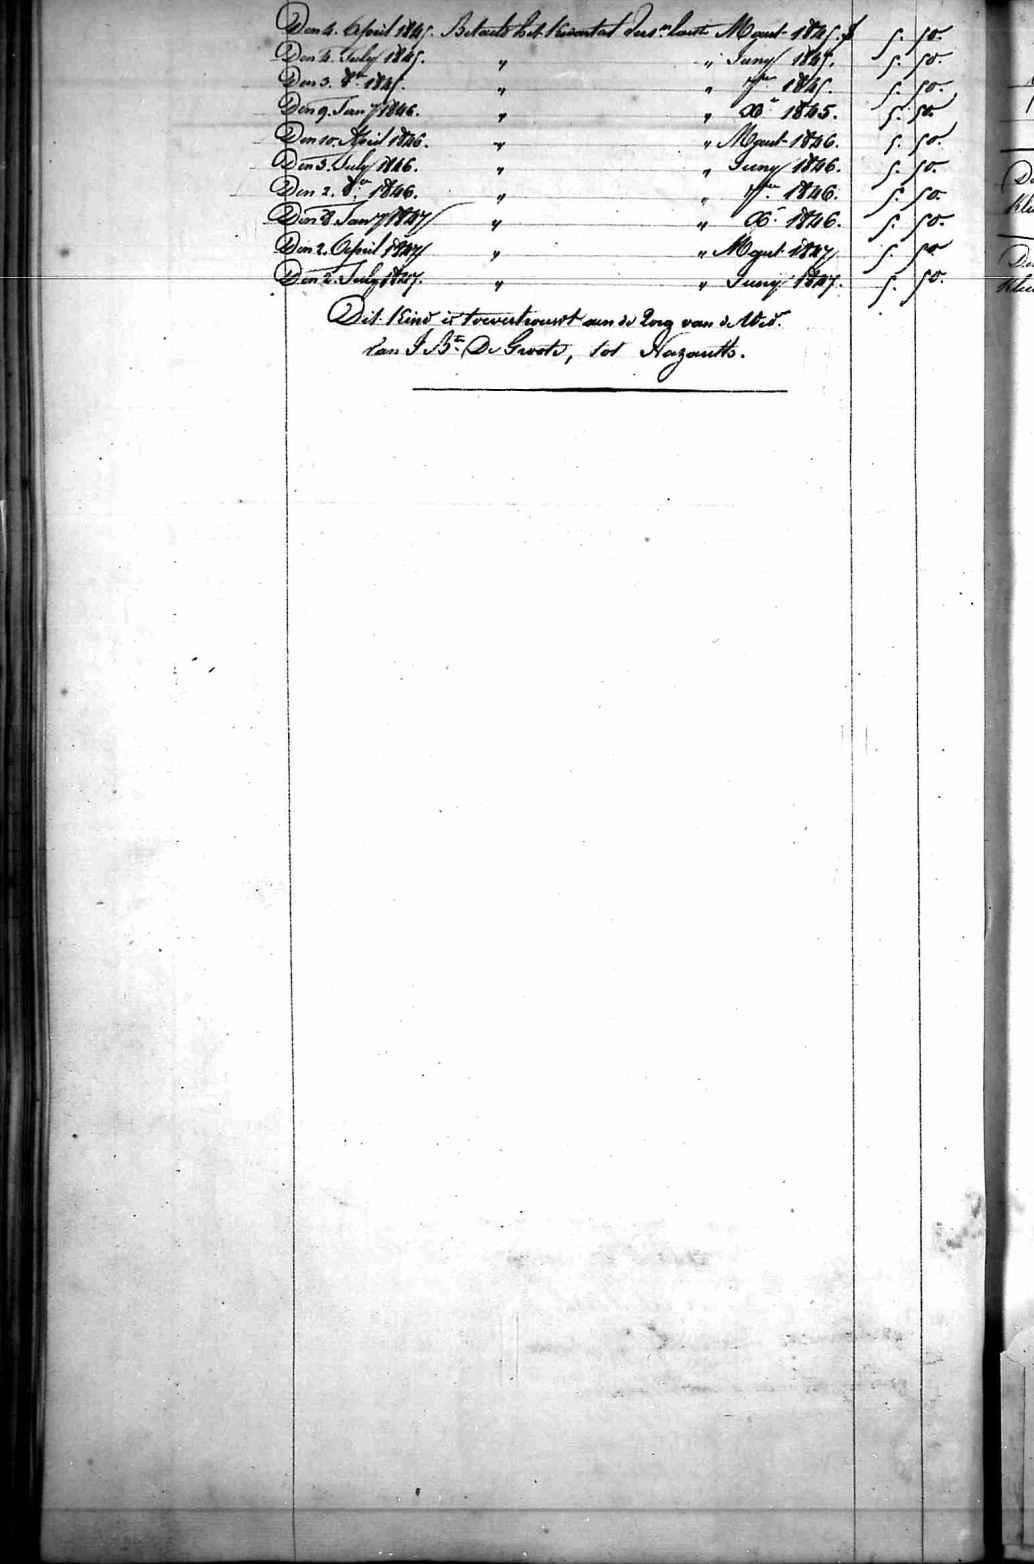 Den 4. April 1845. Betaald het kwartal vers.en laatst Maart 1845. f 5. 50.
Den 4. July 1845. " " Juny 1845. 5. 50.
Den 3. 8er 1845. " " 7er 1845. 5. 50.
Den 9. Jany 1846. " " Xr 1845. 5. 50.
Den 10. April 1846. " " Maart 1846. 5. 50.
Den 3. July 1846. " " Juny 1846. 5. 50.
Den 2. 8er 1846. " " 7er 1846. 5. 50.
Den 8. Jany 1847 " " Xr 1846. 5. 50.
Den 2. April 1847 " " Maart 1847 5. 50
Den 2. July 1847. " " Juny 1847. 5. 50.
Dit Kind is toevertrouwt aen de Zorg van de Wed.
van J Bte De Groote, tot Nazareth.